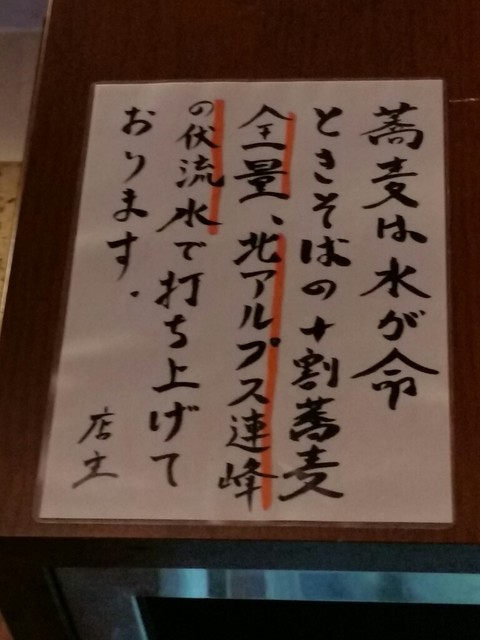 蕎麦は水が命
ときそばの十割蕎麦
全量、北アルプス連峰
の伏流水で打ち上げて
おります.
店主